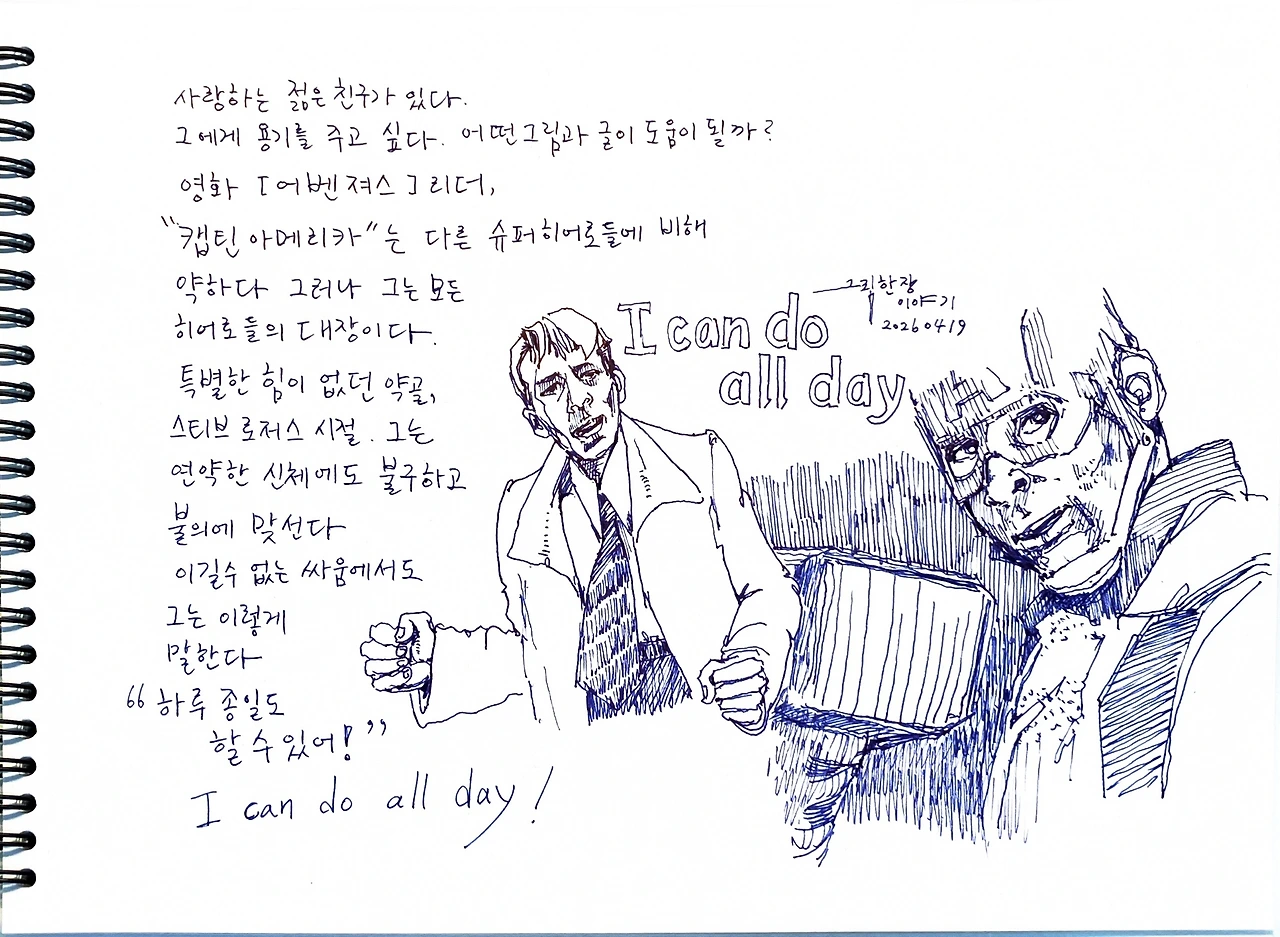 사랑하는 젊은 친구가 있다.
그에게 용기를 주고 싶다. 어떤그림과 글이 도움이 될까?
영화 [어벤져스]리더,
"캡틴 아메리카"는 다른 슈퍼히어로들에 비해
약하다 그러나 그는 모든
히어로들의 대장이다.
특별한 힘이 없던 약골,
스티브 로저스 시절. 그는
연약한 신체에도 불구하고
불의에 맞선다
이길수 없는 싸움에서도
그는 이렇게
말한다
"하루 종일도
할 수 있어!"
I can do all day!
I can do
all day
그림한장
이야기
20260419